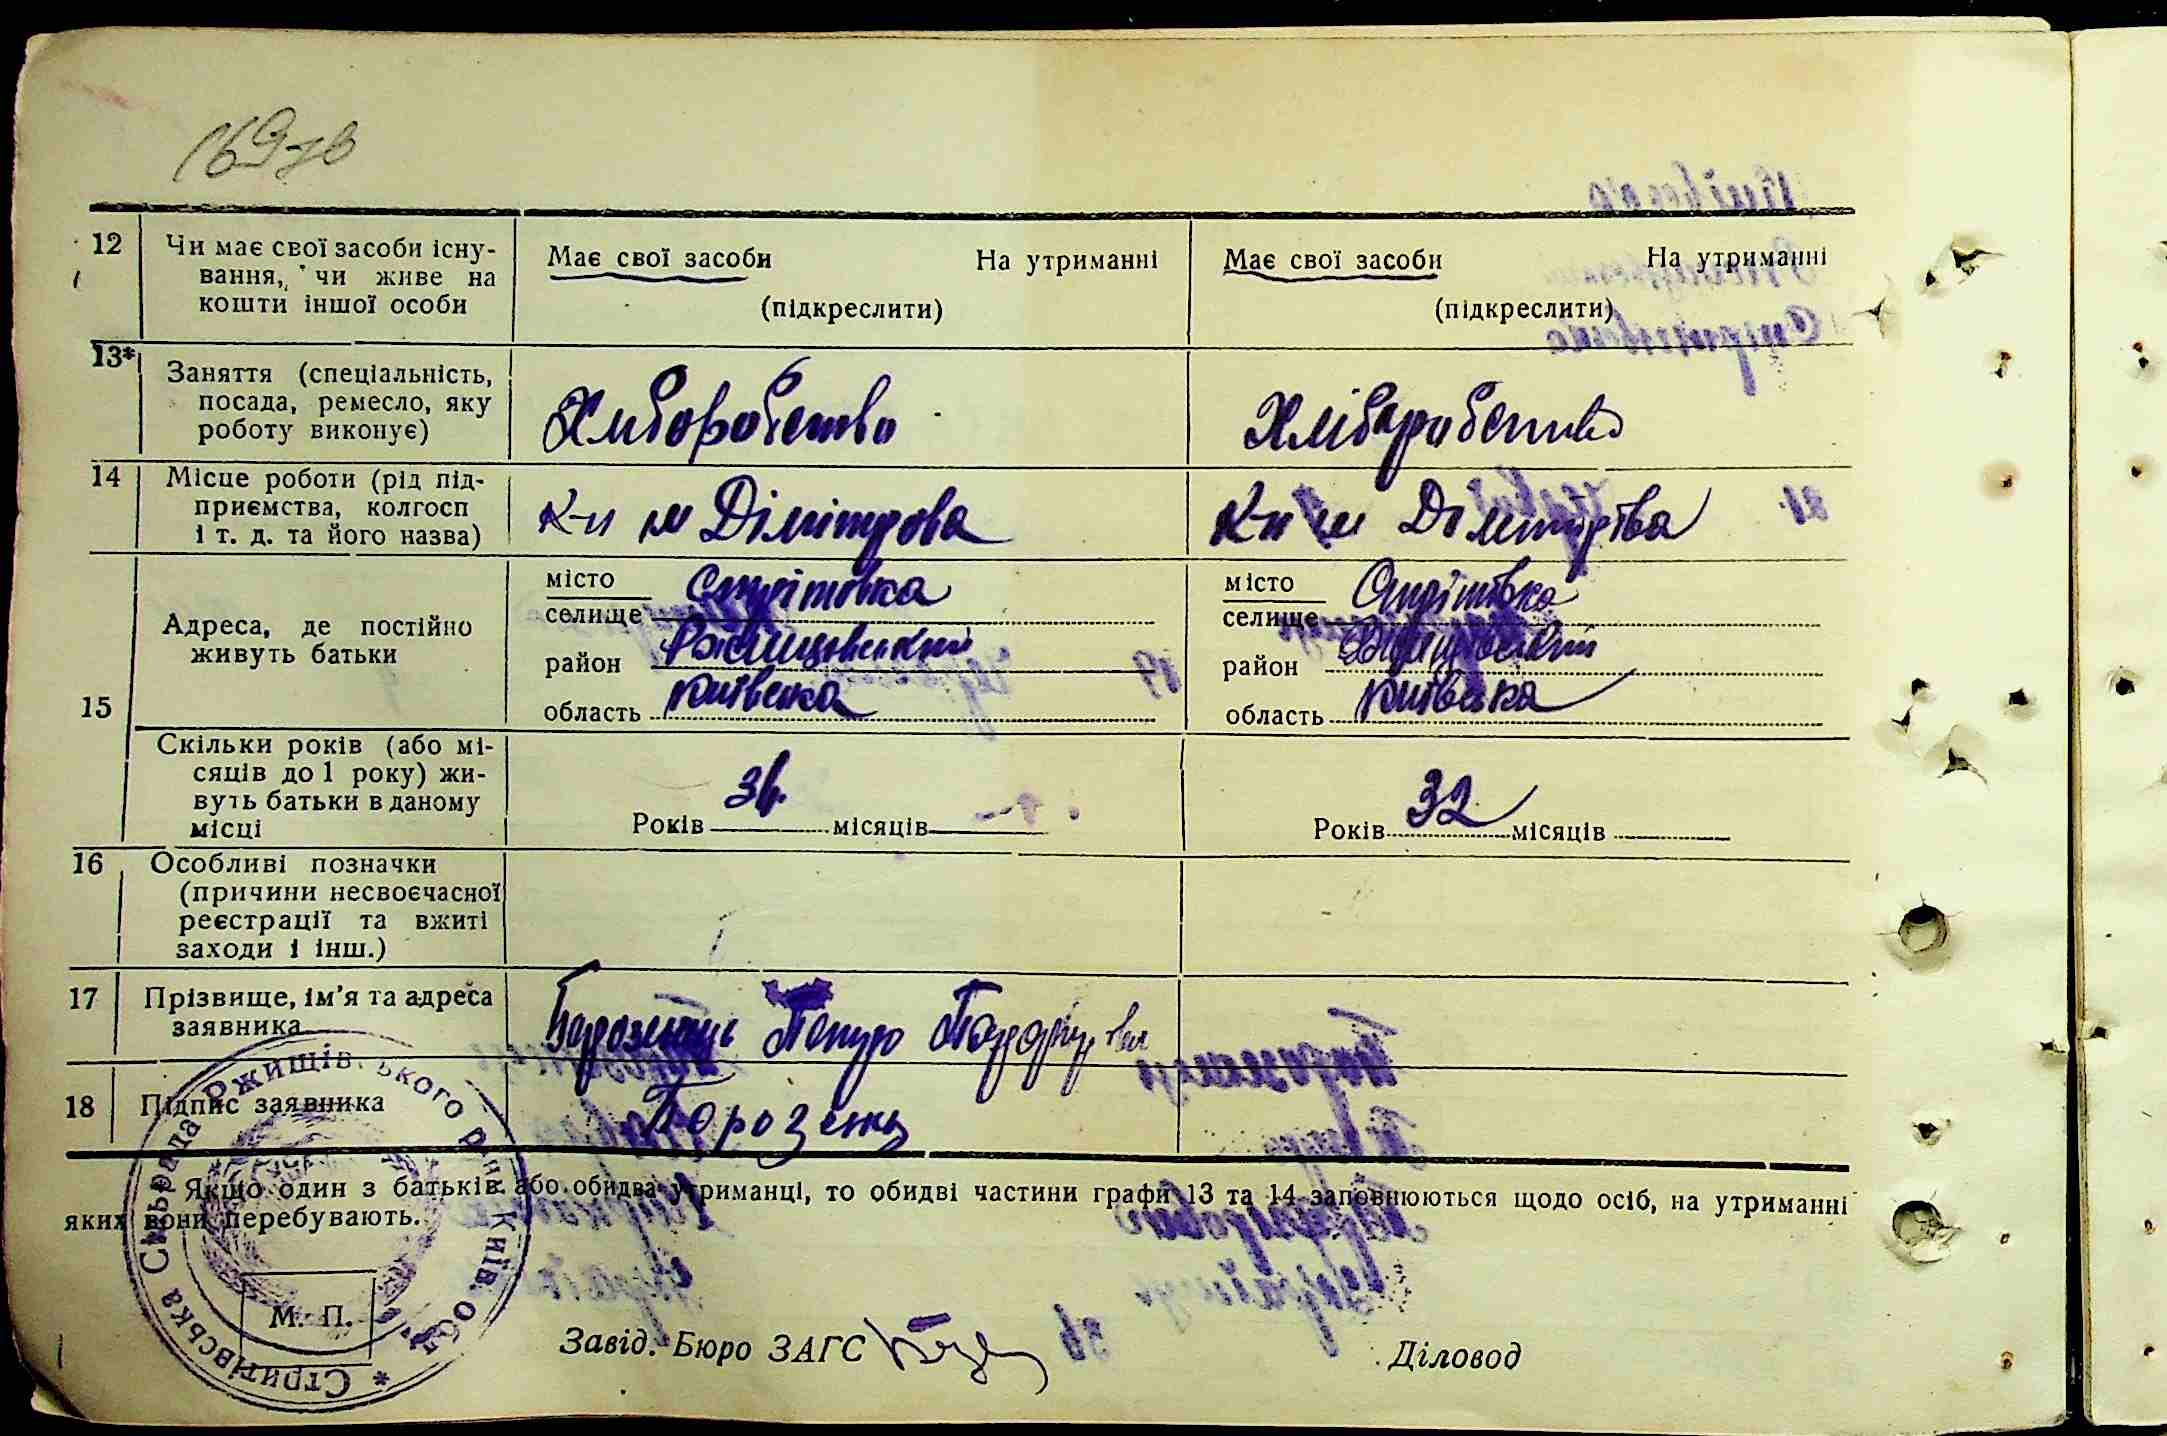 169 зв
12 Чи має свої засоби існу-
вання, чи живе на
кошти іншої особи
Має свої засоби На утриманні
(підкреслити)
Має свої засоби На утриманні
(підкреслити)
13* Заняття (спеціальність,
посада, ремесло, яку
роботу виконує)
Хлиборобство
Хліборобство
14 Місце роботи (рід під-
приємства, колгосп
і т. д. та його назва)
К-п ім Дімітрова
К-п ім
15 Адреса, де постійно
живуть батьки
місто
селище Стрітовка
район Ржищовський
область Київська
місто
селище Стрітовка
район
область Київська
Скільки років (або мі-
сяців до 1 року) жи-
вуть батьки в даному
місці
Років 36. місяців
Років 32 місяців
16 Особливі позначки
(причини несвоєчасної
реєстрації та вжиті
заходи і інш.)
17 Прізвище, ім'я та адреса
заявника
18 Підпис заявника
Якщо один з батьків або обидва утриманці, то обидві частини графи 13 та 14 заповнюються щодо осіб, на утриманні
яких вони перебувають.
Стритівська Сільрада Ржищівського р-ну Київ. обл.
М. П.
Завід. Бюро ЗАГС
Діловод